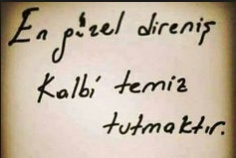 En güzel direniş
Kalbi temiz
tutmaktır.